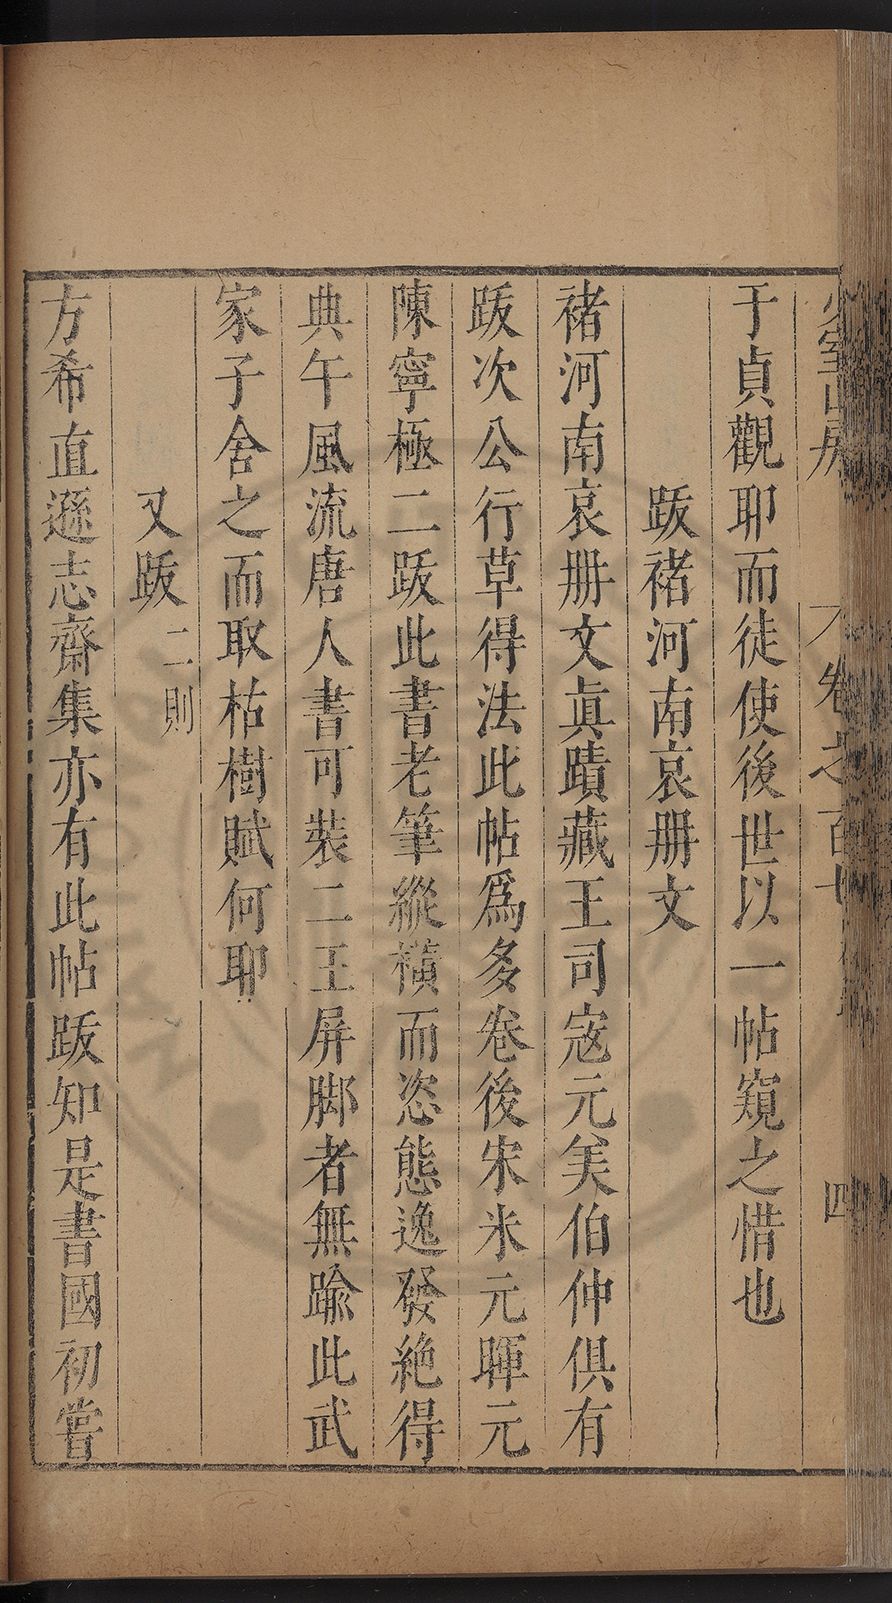 少室山房
卷之百七
四
于貞觀耶而徒使後世以一帖窺之惜也
跋褚河南哀册文
褚河南哀册文眞蹟藏王司寇元美伯仲俱有
跋次公行草得法此帖爲多卷後宋米元暉元
陳寧極二跋此書老筆縱橫而恣態逸發絶得
典午風流唐人書可裝二王屏脚者無踰此武
家子舍之而取枯樹賦何耶
又跋二則
方希直遜志齋集亦有此帖跋知是書國初嘗